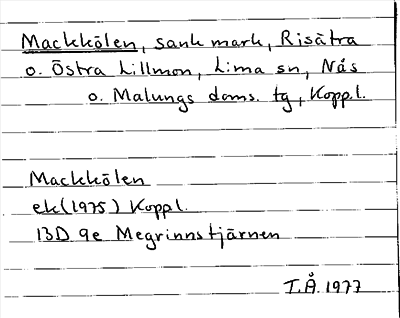 Mackkölen, sank mark, Risätra
o. Östra Lillmon, Lima sn, Nås
o. Malungs doms. tg, Koppl.
Mackkölen
ek (1975) Koppl.
13D 9e Megrinnstjärnen
T.Å. 1977